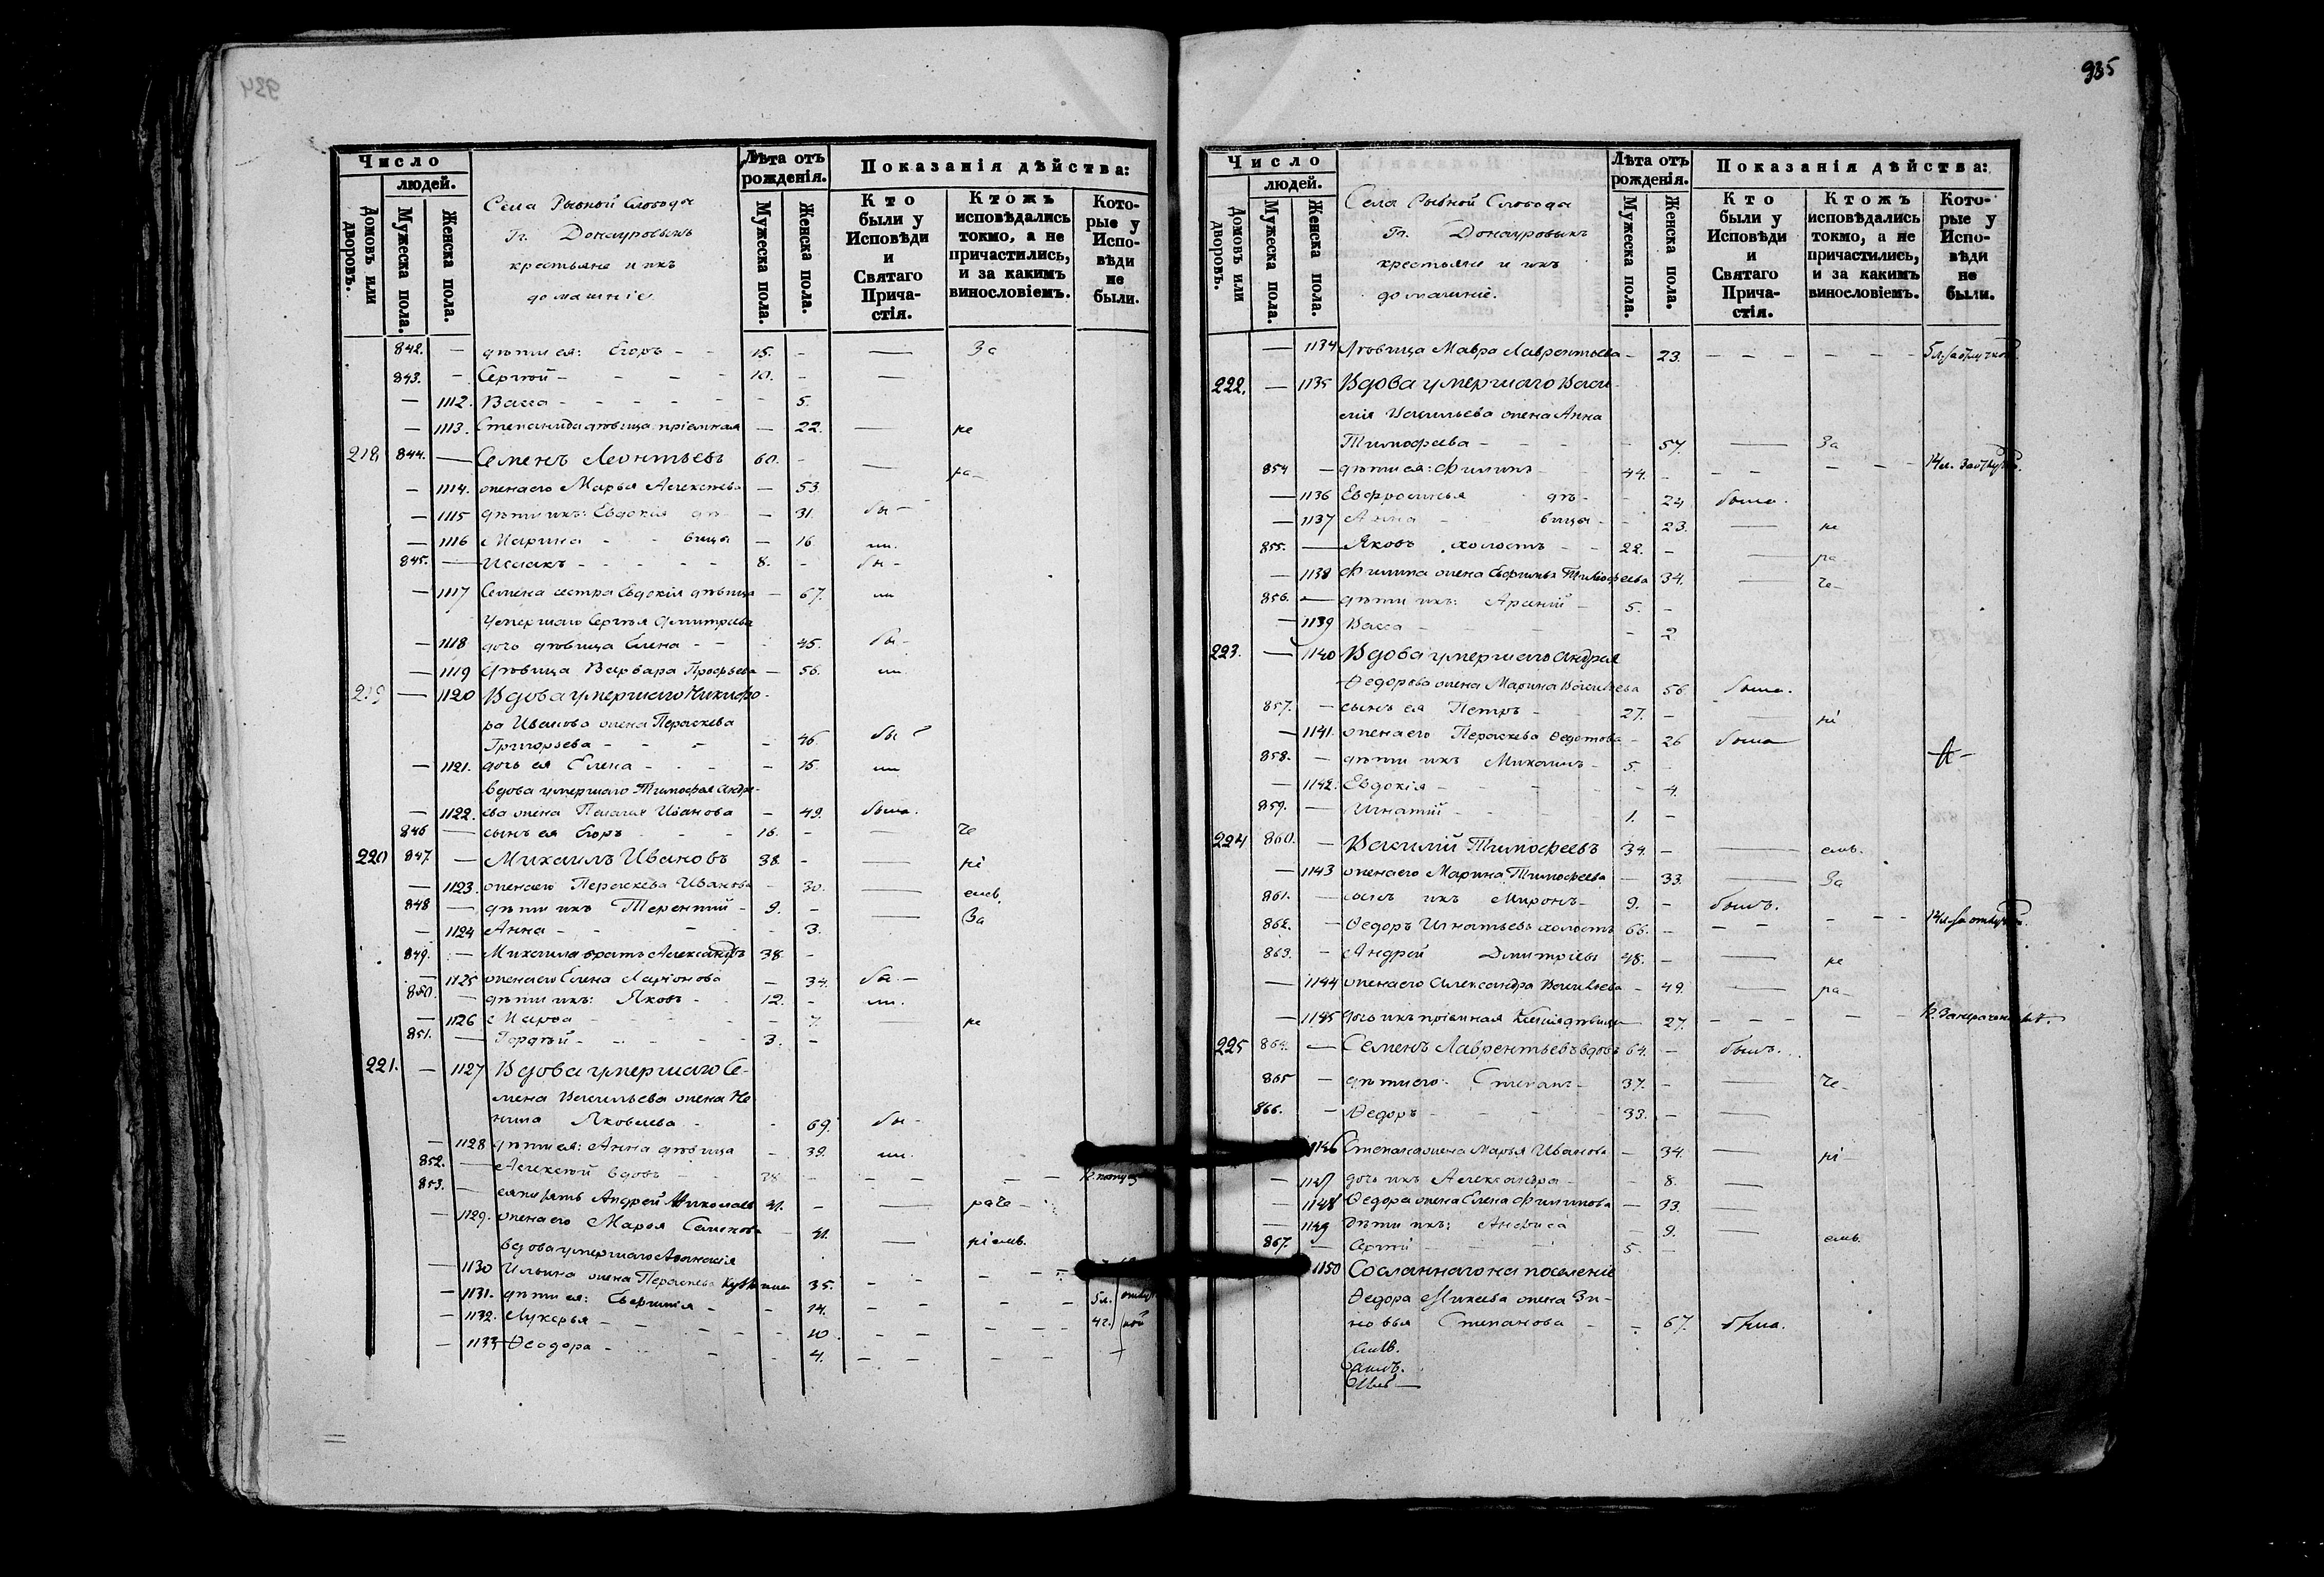 934
Число
людей.
Домовъ или дворовъ.
Мужеска пола.
Женска пола.
Села Рыбной Слободы
Гг. Донауровыхъ
крестьяне и ихъ
домашніе.
Лѣта отъ рожденія.
Мужеска пола.
Женска пола.
Показанія дѣйства:
Кто были у Исповѣди и Святаго Причастія.
Ктожъ исповѣдались токмо, а не причастились, и за какимъ винословіемъ.
Которые у Исповѣди не были.
842. — дѣти ея: Егоръ - - 15. - — За
843. - Сергѣй - - - - 10. - —
— 1112. Васса - - - - - - 5.
— 1113. Степанида дѣвица пріемная — 22. — ре
218 844. — Семенъ Леонтьевъ 60. - — ра-
- 1114. жена его Марья Алексѣева — 53.
— 1115 дѣти ихъ: Евдокія дѣ- — 31. бы-
— 1116 Марина - - вицы — 16.
845. — Исаакъ - - - - - 8. - бы-
— 1117 Семена сестра Евдокія дѣвица — 67.
Умершаго Сергѣя Дмитріева
— 1118 дочь дѣвица Елена - - - 45. бы-
— 1119 Дѣвица Варвара Прокофьева — 56.
219 — 1120 Вдова умершаго Никифо-
ра Иванова жена Параскева
Григорьева - - - - 46. бы
— 1121. дочь ея Елена - - - - 15.
вдова умершаго Тимофея Андре-
— 1122. ева жена Пелагея Иванова - 49. была.
846 — сынъ ея Егоръ - - - 16. - — че
220 847. — Михаилъ Ивановъ 38. - — рі
— 1123. жена его Параскева Иванова - 30. — емъ.
848 — дѣти ихъ Терентій - 9. - — За
— 1124 Анна - - - - - 3.
849. — Михаила братъ Александръ 38. -
— 1125 жена его Елена Ларіонова — 34. бы-
850. — дѣти ихъ: Яковъ - - 12. -
— 1126 Марфа - - - - - 7. — ре
851. — Гордѣй - - - - - 3. -
221. — 1127 Вдова умершаго Се-
мена Васильева жена Не-
нила Яковлева - - 69. бы-
— 1128 дѣти ея: Анна дѣвица - 39.
852. — Алексѣй вдовъ - - 38 - - - - -
853. — зять Андрей Николаевъ 41. - — раче-
— 1129. жена его Марья Семенова — 41. — ріемъ.
вдова умершаго Афанасія
— 1130 Ильина жена Параскева 35. - - - -
— 1131. дѣти ея: Евфимія - - 14. - - - - 5 л.
— 1132. Лукерья - - - - - 10. - - - - 4 г.
— 1133 Ѳеодора - - - - 4. - - - -
935
Число
людей.
Домовъ или дворовъ.
Мужеска пола.
Женска пола.
Села Рыбной Слободы
Гг. Донауровыхъ
крестьяне и ихъ
домашніе.
Лѣта отъ рожденія.
Мужеска пола.
Женска пола.
Показанія дѣйства:
Кто были у Исповѣди и Святаго Причастія.
Ктожъ исповѣдались токмо, а не причастились, и за какимъ винословіемъ.
Которые у Исповѣди не были.
— 1134 Дѣвица Мавра Лаврентьева - 23. - - - - - -
222. — 1135 Вдова умершаго Васи-
лія Васильева жена Анна
Тимофеева - - - - - 57. — За
854 — дѣти ея: Филипъ - - 44. - - - - -
— 1136 Евфросинья дѣ- - 24 была.
— 1137 Анна - - вицы - - 23. — ре
855. — Яковъ холостъ - - 22. - — ра
— 1138 Филипа жена Евфимья Тимофеева 34. — че-
856. — дѣти ихъ: Арсеній - 5. -
— 1139 Васса - - - - - 2.
223. — 1140 Вдова умершаго Андрея
Ѳедорова жена Марина Васильева 56. была.
857. — сынъ ея Петръ - - 27. - — рі
— 1141. жена его Параскева Ѳедотова - 26 была
858. — дѣти ихъ Михаилъ - 5. -
— 1142. Евдокія - - - - - 4.
859. — Игнатій - - - - 1. -
224 860. — Василій Тимофеевъ 34. - — емъ.
— 1143 жена его Марина Тимофеева — 33. — За
861. — сынъ ихъ Миронъ - 9. - былъ.
862. — Ѳедоръ Игнатьевъ холостъ 66. - - - - - -
863. - Андрей Дмитріевъ 48. - — ре
— 1144 жена его Александра Васильева - 49. — ра-
— 1145 дочь ихъ пріемная дѣвица — 27. - - - - -
225 864. — Семенъ Лаврентьевъ вдовъ 64. - былъ.
865 — дѣти его: Степанъ - 37. - — че-
866. — Ѳедоръ - - - - 33. - —
1146 Степана жена Марья Иванова — 34. — рі-
— 1147 дочь ихъ Александра - - 8. —
— 1148 Ѳедора жена Елена Филипова — 33. —
— 1149 дѣти ихъ: Анфиса - 9. —
867. — Сергѣй - - - 5. - — емъ.
1150 Сосланнаго на поселеніе
Ѳедора Михеева жена Зи-
новья Степанова - - 67. была.